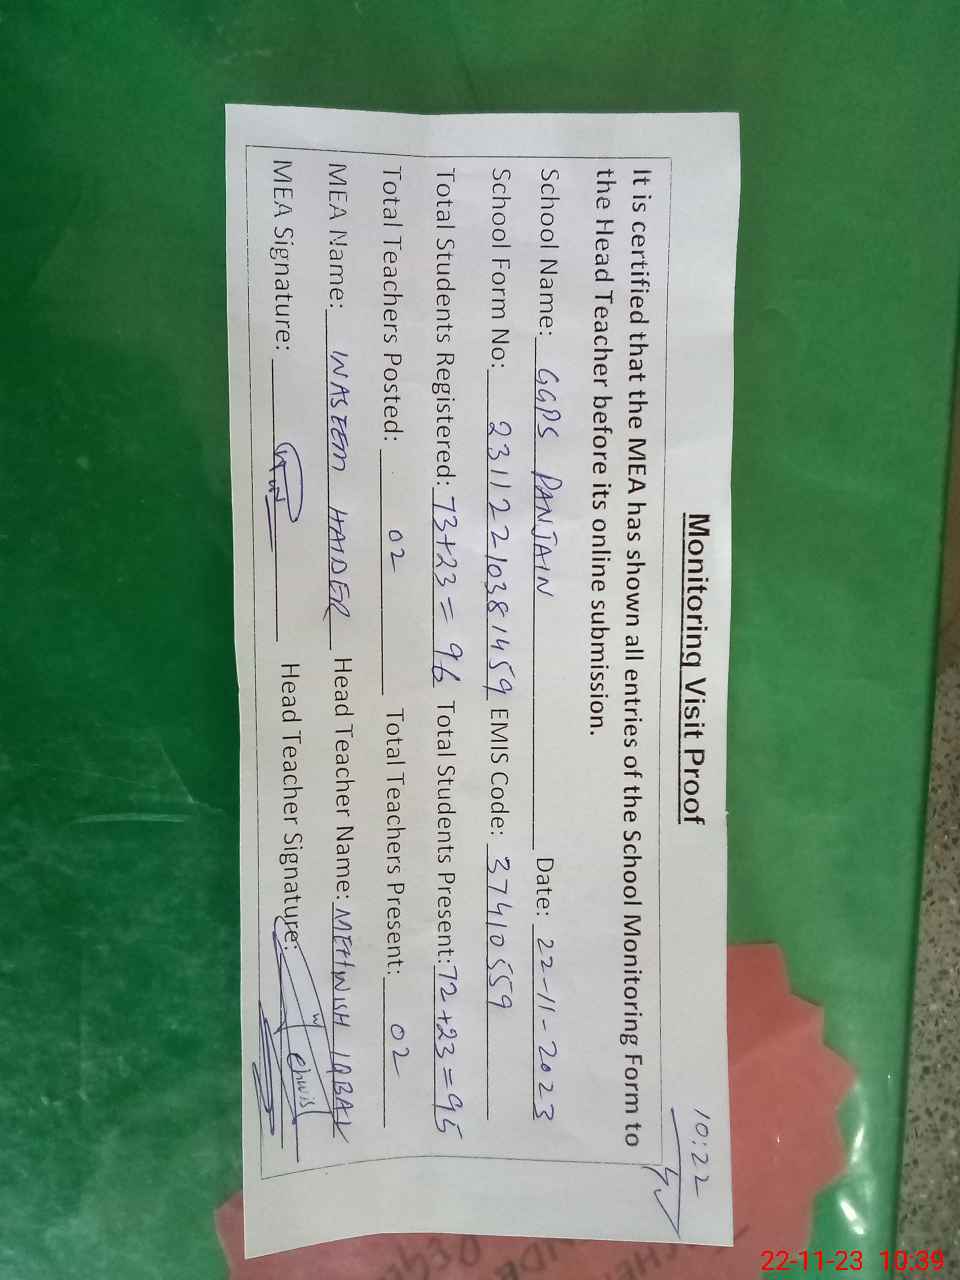 10:22
Monitoring Visit Proof
It is certified that the MEA has shown all entries of the School Monitoring Form to
the Head Teacher before its online submission.
School Name: GGPS PANJAIN Date: 22-11-2023
School Form No: 23112210381459 EMIS Code: 37410559
Total Students Registered: 73+23=96 Total Students Present: 72+23=95
Total Teachers Posted: 02 Total Teachers Present: 02
MEA Name: WASEEM HAIDER Head Teacher Name: MEHWISH IQBAL
MEA Signature: Head Teacher Signature:
22-11-23 10:39